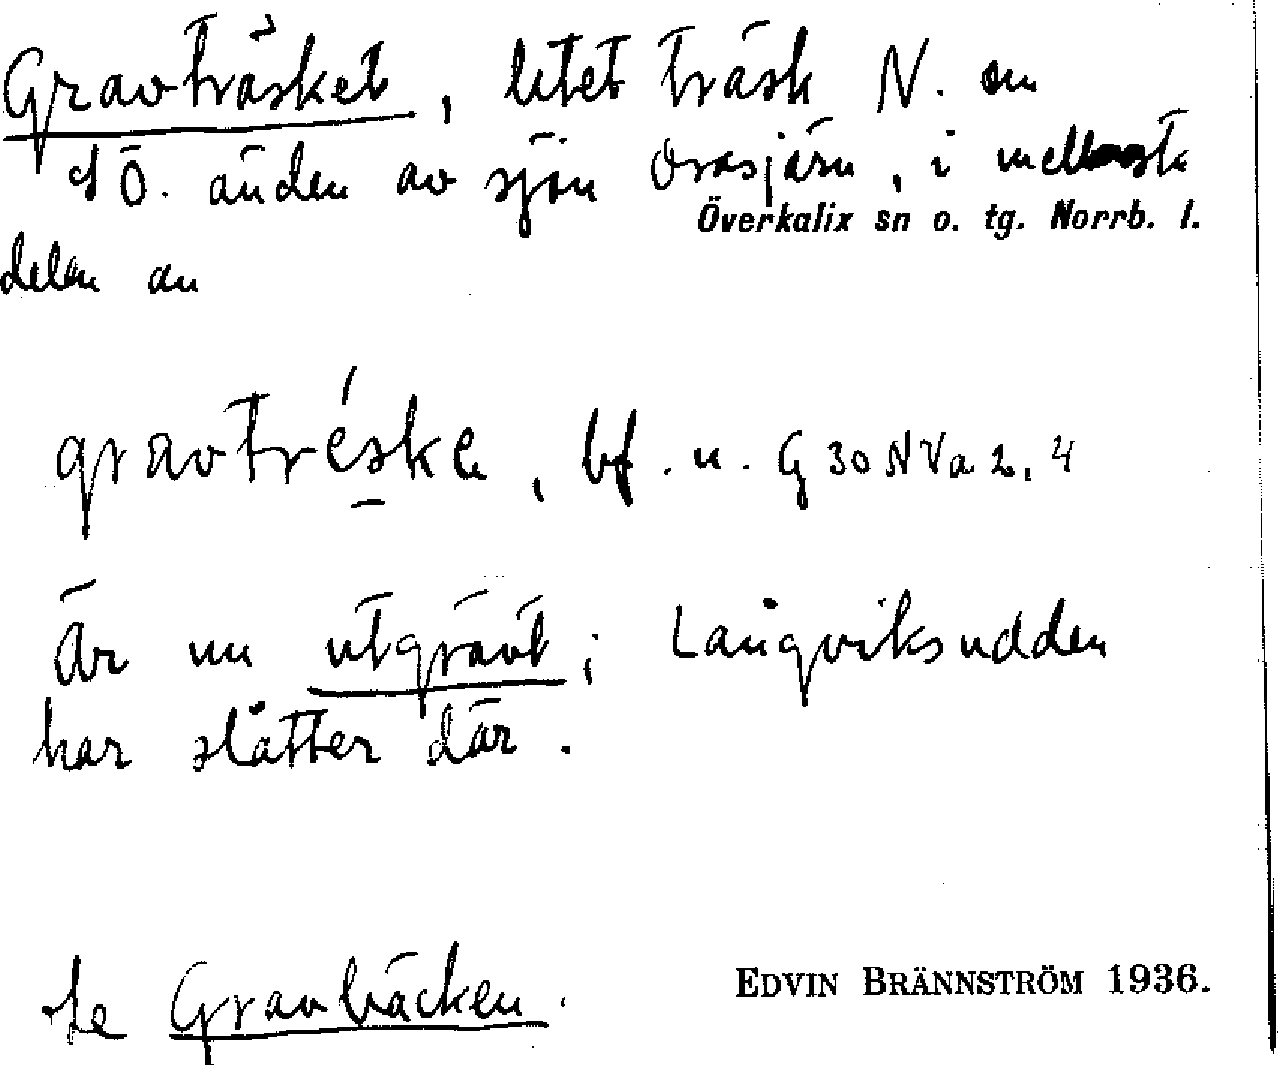 Gravträsket, litet träsk N. om
SÖ. änden av sjön Orasjärv, i mellersta
Överkalix sn o. tg. Norrb. l.
delen av
gravtréske, bf. n. G 30 NVa 2, 4
Är nu utgrävt; Långviksudden
har slåtter där.
Se Gravbäcken.
EDVIN BRÄNNSTRÖM 1936.